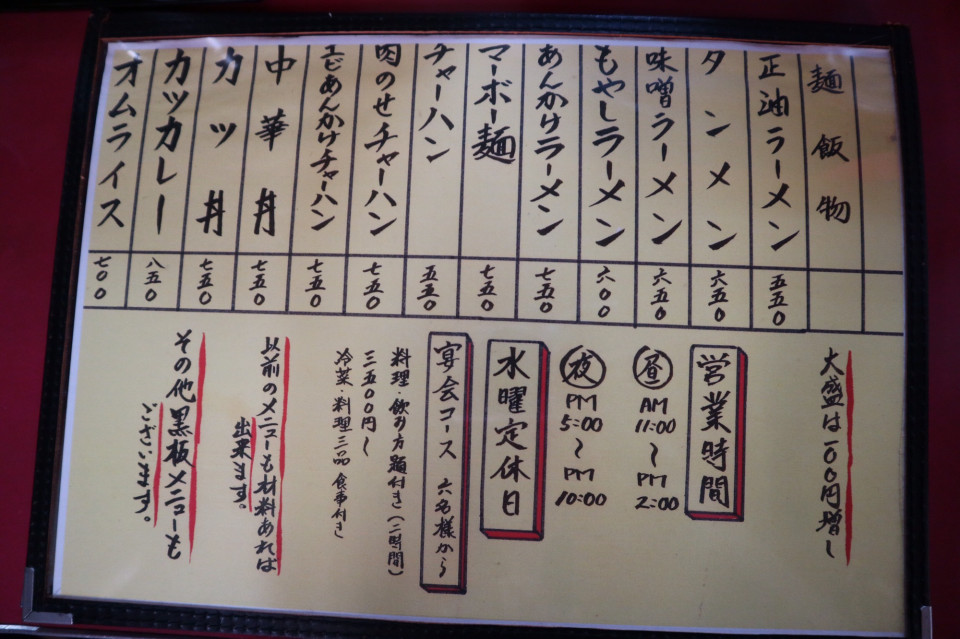 麺飯物
正油ラーメン 五五〇
タンメン 六五〇
味噌ラーメン 六五〇
もやしラーメン 六〇〇
あんかけラーメン 七五〇
マーボー麺 七五〇
チャーハン 五五〇
肉のせチャーハン 七五〇
エビあんかけチャーハン 七五〇
中華丼 七五〇
カツ丼 七五〇
カツカレー 八五〇
オムライス 七〇〇
大盛は一〇〇円増し
営業時間
昼 AM 11:00 〜 PM 2:00
夜 PM 5:00 〜 PM 10:00
水曜定休日
宴会コース 六名様から
料理・飲み方題付き（二時間）
三五〇〇円〜
冷菜・料理三品 食事付き
以前のメニューも材料あれば
出来ます。
その他黒板メニューも
ございます。